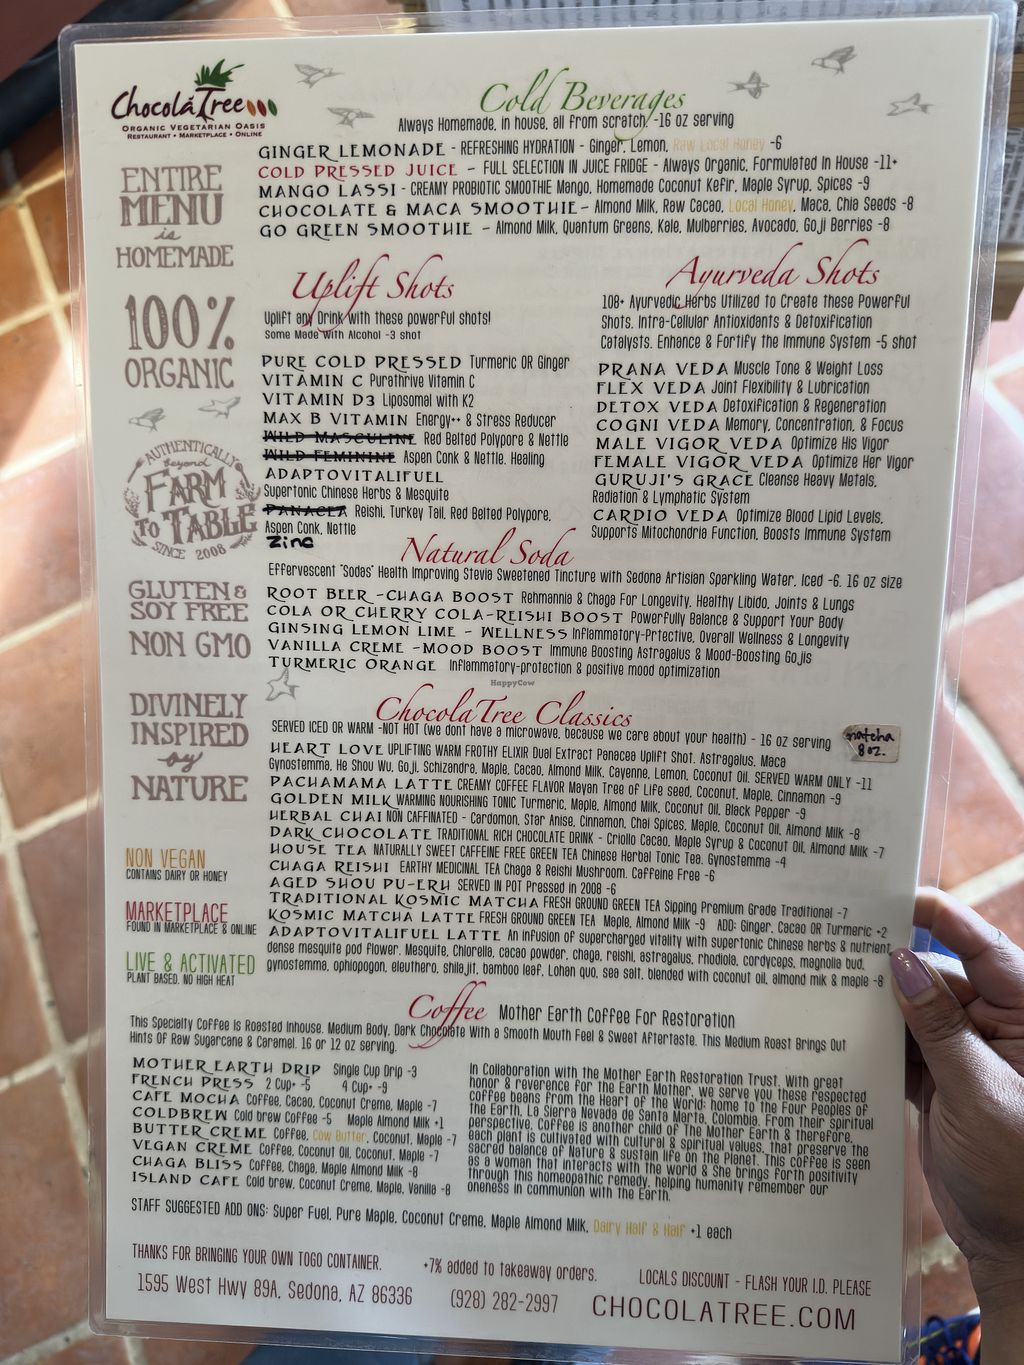 ChocolaTree
ORGANIC VEGETARIAN OASIS
RESTAURANT • MARKETPLACE • ONLINE
ENTIRE
MENU
is
HOMEMADE
100%
ORGANIC
AUTHENTICALLY
beyond
FARM
TO TABLE
SINCE 2008
GLUTEN &
SOY FREE
NON GMO
DIVINELY
INSPIRED
by
NATURE
NON VEGAN
CONTAINS DAIRY OR HONEY
MARKETPLACE
FOUND IN MARKETPLACE & ONLINE
LIVE & ACTIVATED
PLANT BASED, NO HIGH HEAT
Cold Beverages
Always Homemade, in house, all from scratch. -16 oz serving
GINGER LEMONADE - REFRESHING HYDRATION - Ginger, Lemon, Raw Local Honey -6
COLD PRESSED JUICE - FULL SELECTION IN JUICE FRIDGE - Always Organic, Formulated In House -11+
MANGO LASSI - CREAMY PROBIOTIC SMOOTHIE Mango, Homemade Coconut Kefir, Maple Syrup, Spices -9
CHOCOLATE & MACA SMOOTHIE - Almond Milk, Raw Cacao, Local Honey, Maca, Chia Seeds -8
GO GREEN SMOOTHIE - Almond Milk, Quantum Greens, Kale, Mulberries, Avocado, Goji Berries -8
Uplift Shots
Uplift any Drink with these powerful shots!
Some Made With Alcohol -3 shot
PURE COLD PRESSED Turmeric OR Ginger
VITAMIN C Purathrive Vitamin C
VITAMIN D3 Liposomal with K2
MAX B VITAMIN Energy++ & Stress Reducer
WILD MASCULINE Red Belted Polypore & Nettle
WILD FEMININE Aspen Conk & Nettle, Healing
ADAPTOVITALIFUEL
Supertonic Chinese Herbs & Mesquite
PANACEA Reishi, Turkey Tail, Red Belted Polypore,
Aspen Conk, Nettle
Zinc
Ayurveda Shots
108+ Ayurvedic Herbs Utilized to Create these Powerful
Shots. Intra-Cellular Antioxidants & Detoxification
Catalysts. Enhance & Fortify the Immune System -5 shot
PRANA VEDA Muscle Tone & Weight Loss
FLEX VEDA Joint Flexibility & Lubrication
DETOX VEDA Detoxification & Regeneration
COGNI VEDA Memory, Concentration, & Focus
MALE VIGOR VEDA Optimize His Vigor
FEMALE VIGOR VEDA Optimize Her Vigor
GURUJI'S GRACE Cleanse Heavy Metals,
Radiation & Lymphatic System
CARDIO VEDA Optimize Blood Lipid Levels,
Supports Mitochondria Function, Boosts Immune System
Natural Soda
Effervescent "Sodas" Health Improving Stevia Sweetened Tincture with Sedona Artisian Sparkling Water, Iced -6. 16 oz size
ROOT BEER -CHAGA BOOST Rehmannia & Chaga For Longevity, Healthy Libido, Joints & Lungs
COLA OR CHERRY COLA-REISHI BOOST Powerfully Balance & Support Your Body
GINSING LEMON LIME - WELLNESS Inflammatory-Prtective, Overall Wellness & Longevity
VANILLA CREME -MOOD BOOST Immune Boosting Astragalus & Mood-Boosting Gojis
TURMERIC ORANGE Inflammatory-protection & positive mood optimization
HappyCow
ChocolaTree Classics
SERVED ICED OR WARM -NOT HOT (we dont have a microwave, because we care about your health) - 16 oz serving
matcha
8 oz.
HEART LOVE UPLIFTING WARM FROTHY ELIXIR Dual Extract Panacea Uplift Shot, Astragalus, Maca
Gynostemma, He Shou Wu, Goji, Schizandra, Maple, Cacao, Almond Milk, Cayenne, Lemon, Coconut Oil. SERVED WARM ONLY -11
PACHAMAMA LATTE CREAMY COFFEE FLAVOR Mayan Tree of Life seed, Coconut, Maple, Cinnamon -9
GOLDEN MILK WARMING NOURISHING TONIC Turmeric, Maple, Almond Milk, Coconut Oil, Black Pepper -9
HERBAL CHAI NON CAFFINATED - Cardomon, Star Anise, Cinnamon, Chai Spices, Maple, Coconut Oil, Almond Milk -8
DARK CHOCOLATE TRADITIONAL RICH CHOCOLATE DRINK - Criollo Cacao, Maple Syrup & Coconut Oil, Almond Milk -7
HOUSE TEA NATURALLY SWEET CAFFEINE FREE GREEN TEA Chinese Herbal Tonic Tea, Gynostemma -4
CHAGA REISHI EARTHY MEDICINAL TEA Chaga & Reishi Mushroom. Caffeine Free -6
AGED SHOU PU-ERH SERVED IN POT Pressed in 2008 -6
TRADITIONAL KOSMIC MATCHA FRESH GROUND GREEN TEA Sipping Premium Grade Traditional -7
KOSMIC MATCHA LATTE FRESH GROUND GREEN TEA Maple, Almond Milk -9 ADD: Ginger, Cacao OR Turmeric +2
ADAPTOVITALIFUEL LATTE An infusion of supercharged vitality with supertonic Chinese herbs & nutrient
dense mesquite pod flower. Mesquite, Chlorella, cacao powder, chaga, reishi, astragalus, rhodiola, cordyceps, magnolia bud,
gynostemma, ophiopogon, eleuthero, shilajit, bamboo leaf, Lohan quo, sea salt, blended with coconut oil, almond milk & maple -8
Coffee Mother Earth Coffee For Restoration
This Specialty Coffee Is Roasted Inhouse. Medium Body, Dark Chocolate With a Smooth Mouth Feel & Sweet Aftertaste. This Medium Roast Brings Out
Hints Of Raw Sugarcane & Caramel. 16 or 12 oz serving.
MOTHER EARTH DRIP Single Cup Drip -3
FRENCH PRESS 2 Cup+ -5 4 Cup+ -9
CAFE MOCHA Coffee, Cacao, Coconut Creme, Maple -7
COLDBREW Cold brew Coffee -5 Maple Almond Milk +1
BUTTER CREME Coffee, Cow Butter, Coconut, Maple -7
VEGAN CREME Coffee, Coconut Oil, Coconut, Maple -7
CHAGA BLISS Coffee, Chaga, Maple Almond Milk -8
ISLAND CAFE Cold brew, Coconut Creme, Maple, Vanilla -8
In Collaboration with the Mother Earth Restoration Trust. With great
honor & reverence for the Earth Mother, we serve you these respected
coffee beans from the Heart of the World; home to the Four Peoples of
the Earth, La Sierra Nevada de Santa Marta, Colombia. From their spiritual
perspective, Coffee is another child of The Mother Earth & therefore,
each plant is cultivated with cultural & spiritual values, that preserve the
sacred balance of Nature & sustain life on the Planet. This coffee is seen
as a woman that interacts with the world & She brings forth positivity
through this homeopathic remedy, helping humanity remember our
oneness in communion with the Earth.
STAFF SUGGESTED ADD ONS: Super Fuel, Pure Maple, Coconut Creme, Maple Almond Milk, Dairy Half & Half +1 each
THANKS FOR BRINGING YOUR OWN TOGO CONTAINER. +7% added to takeaway orders. LOCALS DISCOUNT - FLASH YOUR I.D. PLEASE
1595 West Hwy 89A, Sedona, AZ 86336 (928) 282-2997 CHOCOLATREE.COM